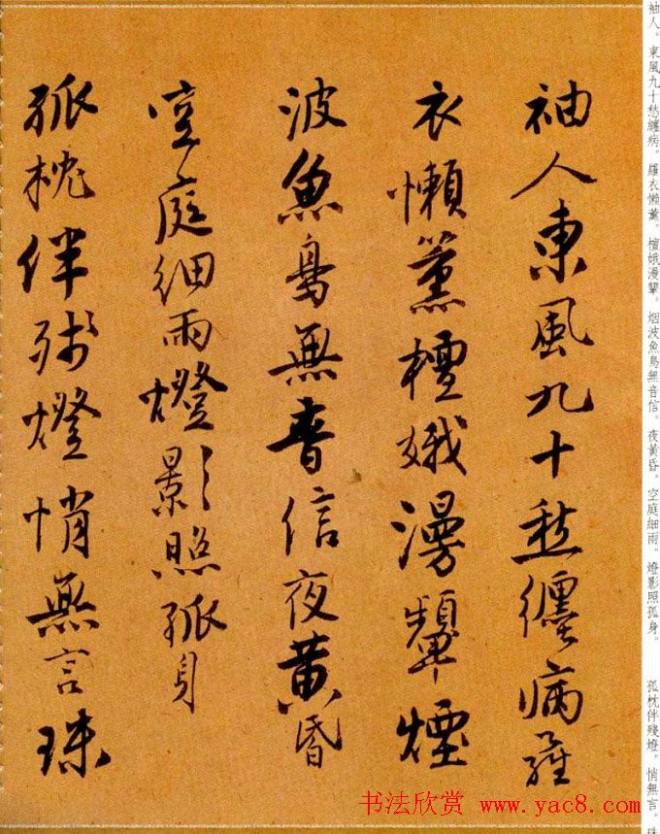 袖人東風九十愁纏病羅
衣懶薰檀娥漫顰煙
波魚鳥無音信夜黄昏
空庭細雨燈影照孤身
孤枕伴殘燈悄無言珠
袖人。東風九十愁纏病。羅衣懶薰。檀娥漫顰。烟波魚鳥無音信。夜黄昏。空庭細雨。燈影照孤身。 孤枕伴殘燈。悄無言。
书法欣赏 www.yac8.com